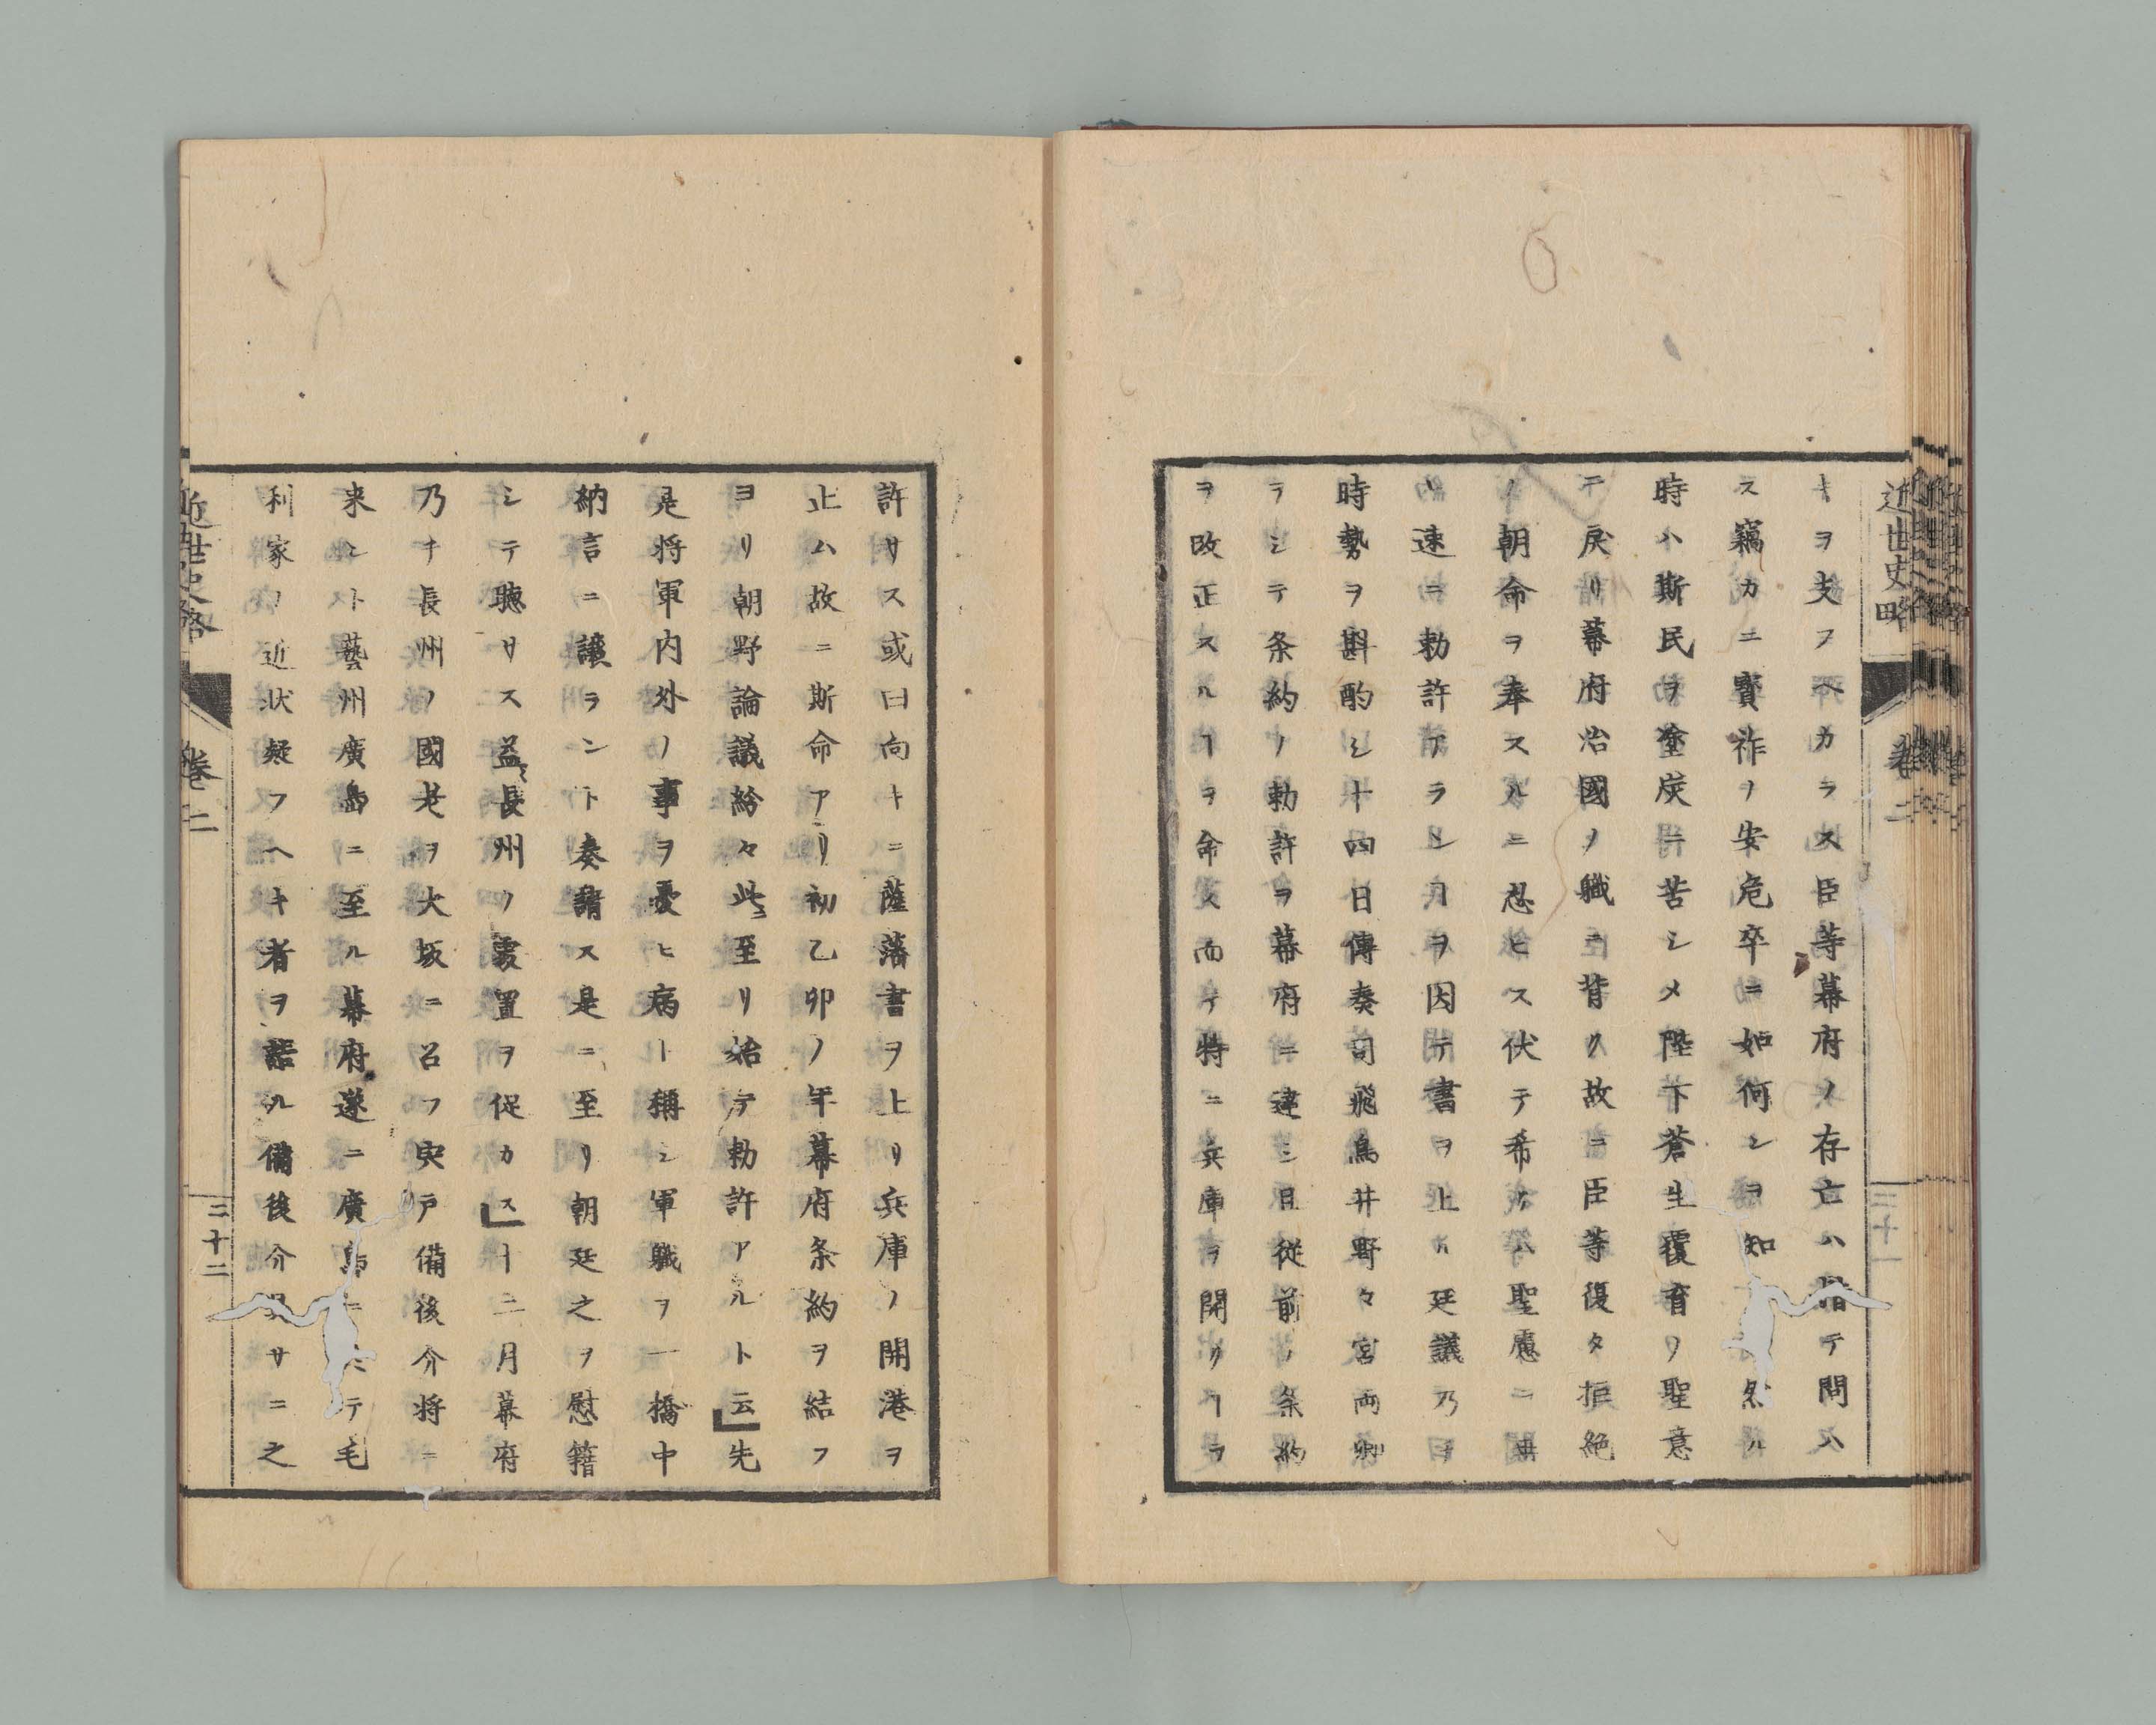 近世史略
卷二
三十一
キヲ支フヘカラス臣等幕府ノ存亡ハ措テ問ハ
ス竊カニ寳祚ノ安危卒ニ如何シヲ知 然ル
時ハ斯民ヲ塗炭ニ苦シメ陛下蒼生覆育ノ聖意
ニ戻リ幕府治國ノ職ニ背ク故ニ臣等復タ拒絶
ノ朝命ヲ奉スルニ忍ヒス伏テ希クハ聖慮ニ
速ニ勅許アランヿヲ因テ書ヲ上ル廷議乃ヲ
時勢ヲ斟酌シ十四日傳奏司飛鳥井野々宮両卿
ヲシテ条約ノ勅許ヲ幕府ニ達シ且從前ノ条約
ヲ改正スルヿヲ命ス而テ特ニ兵庫ヲ開クヿヲ
許サス或曰向キニ薩藩書ヲ上リ兵庫ノ開港ヲ
止ム故ニ斯命アリ初乙卯ノ年幕府条約ヲ結フ
ヨリ朝野論議紛々此ニ至リ始テ勅許アルト云」先
是将軍内外ノ事ヲ憂ヒ病ト稱シ軍職ヲ一橋中
納言ニ譲ラント奏請ス是ニ至リ朝廷之ヲ慰籍
シテ聴サス益々長州ノ處置ヲ促カス」十二月幕府
乃チ長州ノ國老ヲ大坂ニ召フ宍戸備後介将ニ
来ントト藝州廣島ニ至ル幕府遂ニ廣島ニ テ毛
利家ノ近状疑フヘキ者ヲ詰ル備後介 サニ之
近世史略
卷二
三十二